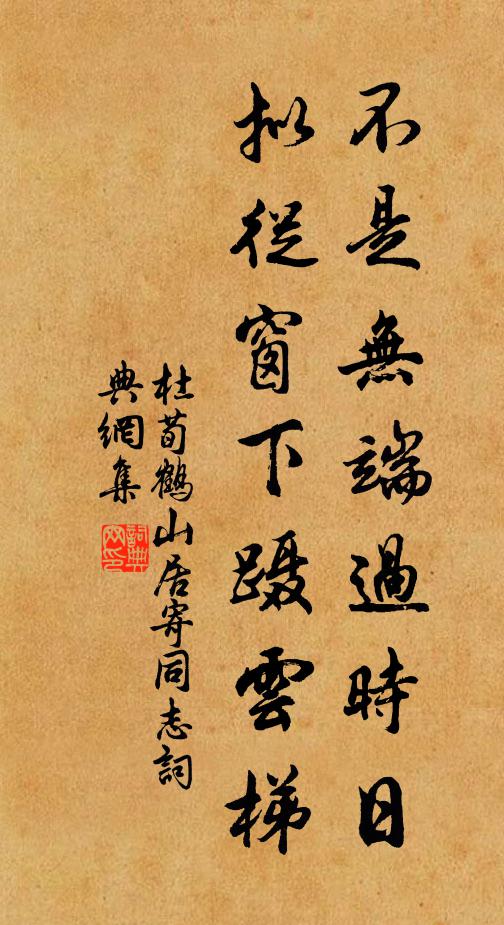 不是無端過時日
拟從窗下蹑雲梯
杜荀鶴山居寄同志詞
典網集
詞典
网印